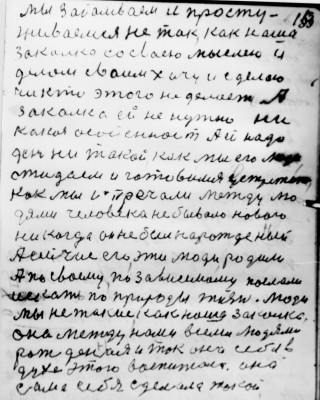 мы заболиваем и просту- 153
живаемся не так, как наша
закалка со своею мыслею и
делом своим хачу и сделаю
чикто этого не делает. А
закалка ей не нужно ни
какая особенност А ей надо
ден ни такой как мы его
ожидаем и готовимся
как мы и встречали между лю
дями человека не бывало нового
никогда он не был нарожденый
А сейчас его эти люди родили
Апосвоиму позависимому послали
искат по природи жизн. Люди
мы не такие как наша закалка.
она между нами всеми людями
рожденая и ток она себя в
духе этого воспитала. она
сама себя сделала такой